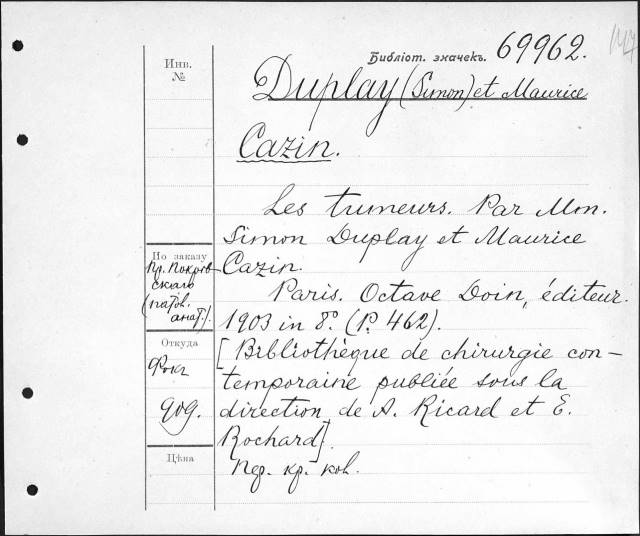 Библіот. значекъ. 69962.
Инв.
№
Duplay (Simon) et Maurice
Cazin.
Les tumeurs. Par Mm.
Simon Duplay et Maurice
Cazin.
По заказу
Пр. Покров-
скаго
(патол.
анат.).
Paris. Octave Doin, éditeur.
1903 in 8º. (P. 462).
Откуда
Фокъ
909.
[Bibliothèque de chirurgie con-
temporaine publiée sous la
direction de A. Ricard et E.
Rochard].
Цѣна
Пер. кр. кол.